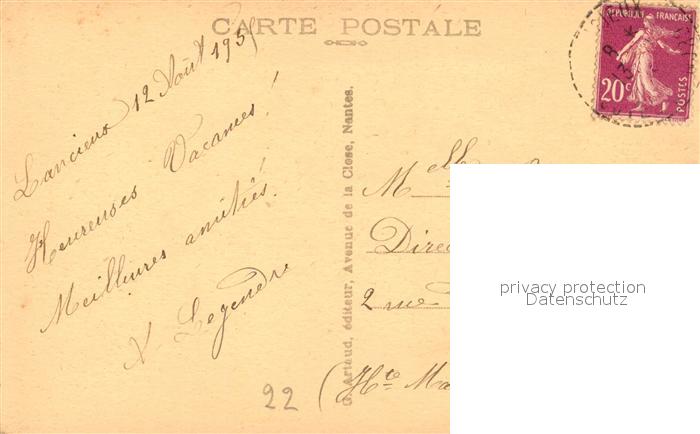 CARTE POSTALE
Lancieux 12 Août 195
Heureuses Vacances!
Meilleures amitiés!
Legendre
22
G. Artaud, éditeur, Avenue de la Close, Nantes.
Melle
Direc
2 rue
(Hte Ma
REPUBLIQUE FRANÇAISE
20c
POSTES
privacy protection
Datenschutz